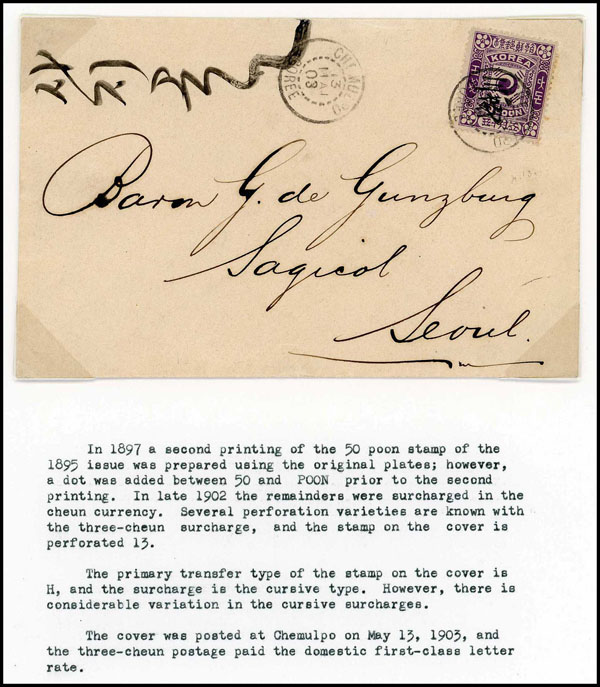 CHEMULPO
13
MAI
03
COREE
KOREA
POON
Baron G. de Gunzburg
Sagicol
Seoul.
In 1897 a second printing of the 50 poon stamp of the
1895 issue was prepared using the original plates; however,
a dot was added between 50 and POON prior to the second
printing. In late 1902 the remainders were surcharged in the
cheun currency. Several perforation varieties are known with
the three-cheun surcharge, and the stamp on the cover is
perforated 13.
The primary transfer type of the stamp on the cover is
H, and the surcharge is the cursive type. However, there is
considerable variation in the cursive surcharges.
The cover was posted at Chemulpo on May 13, 1903, and
the three-cheun postage paid the domestic first-class letter
rate.